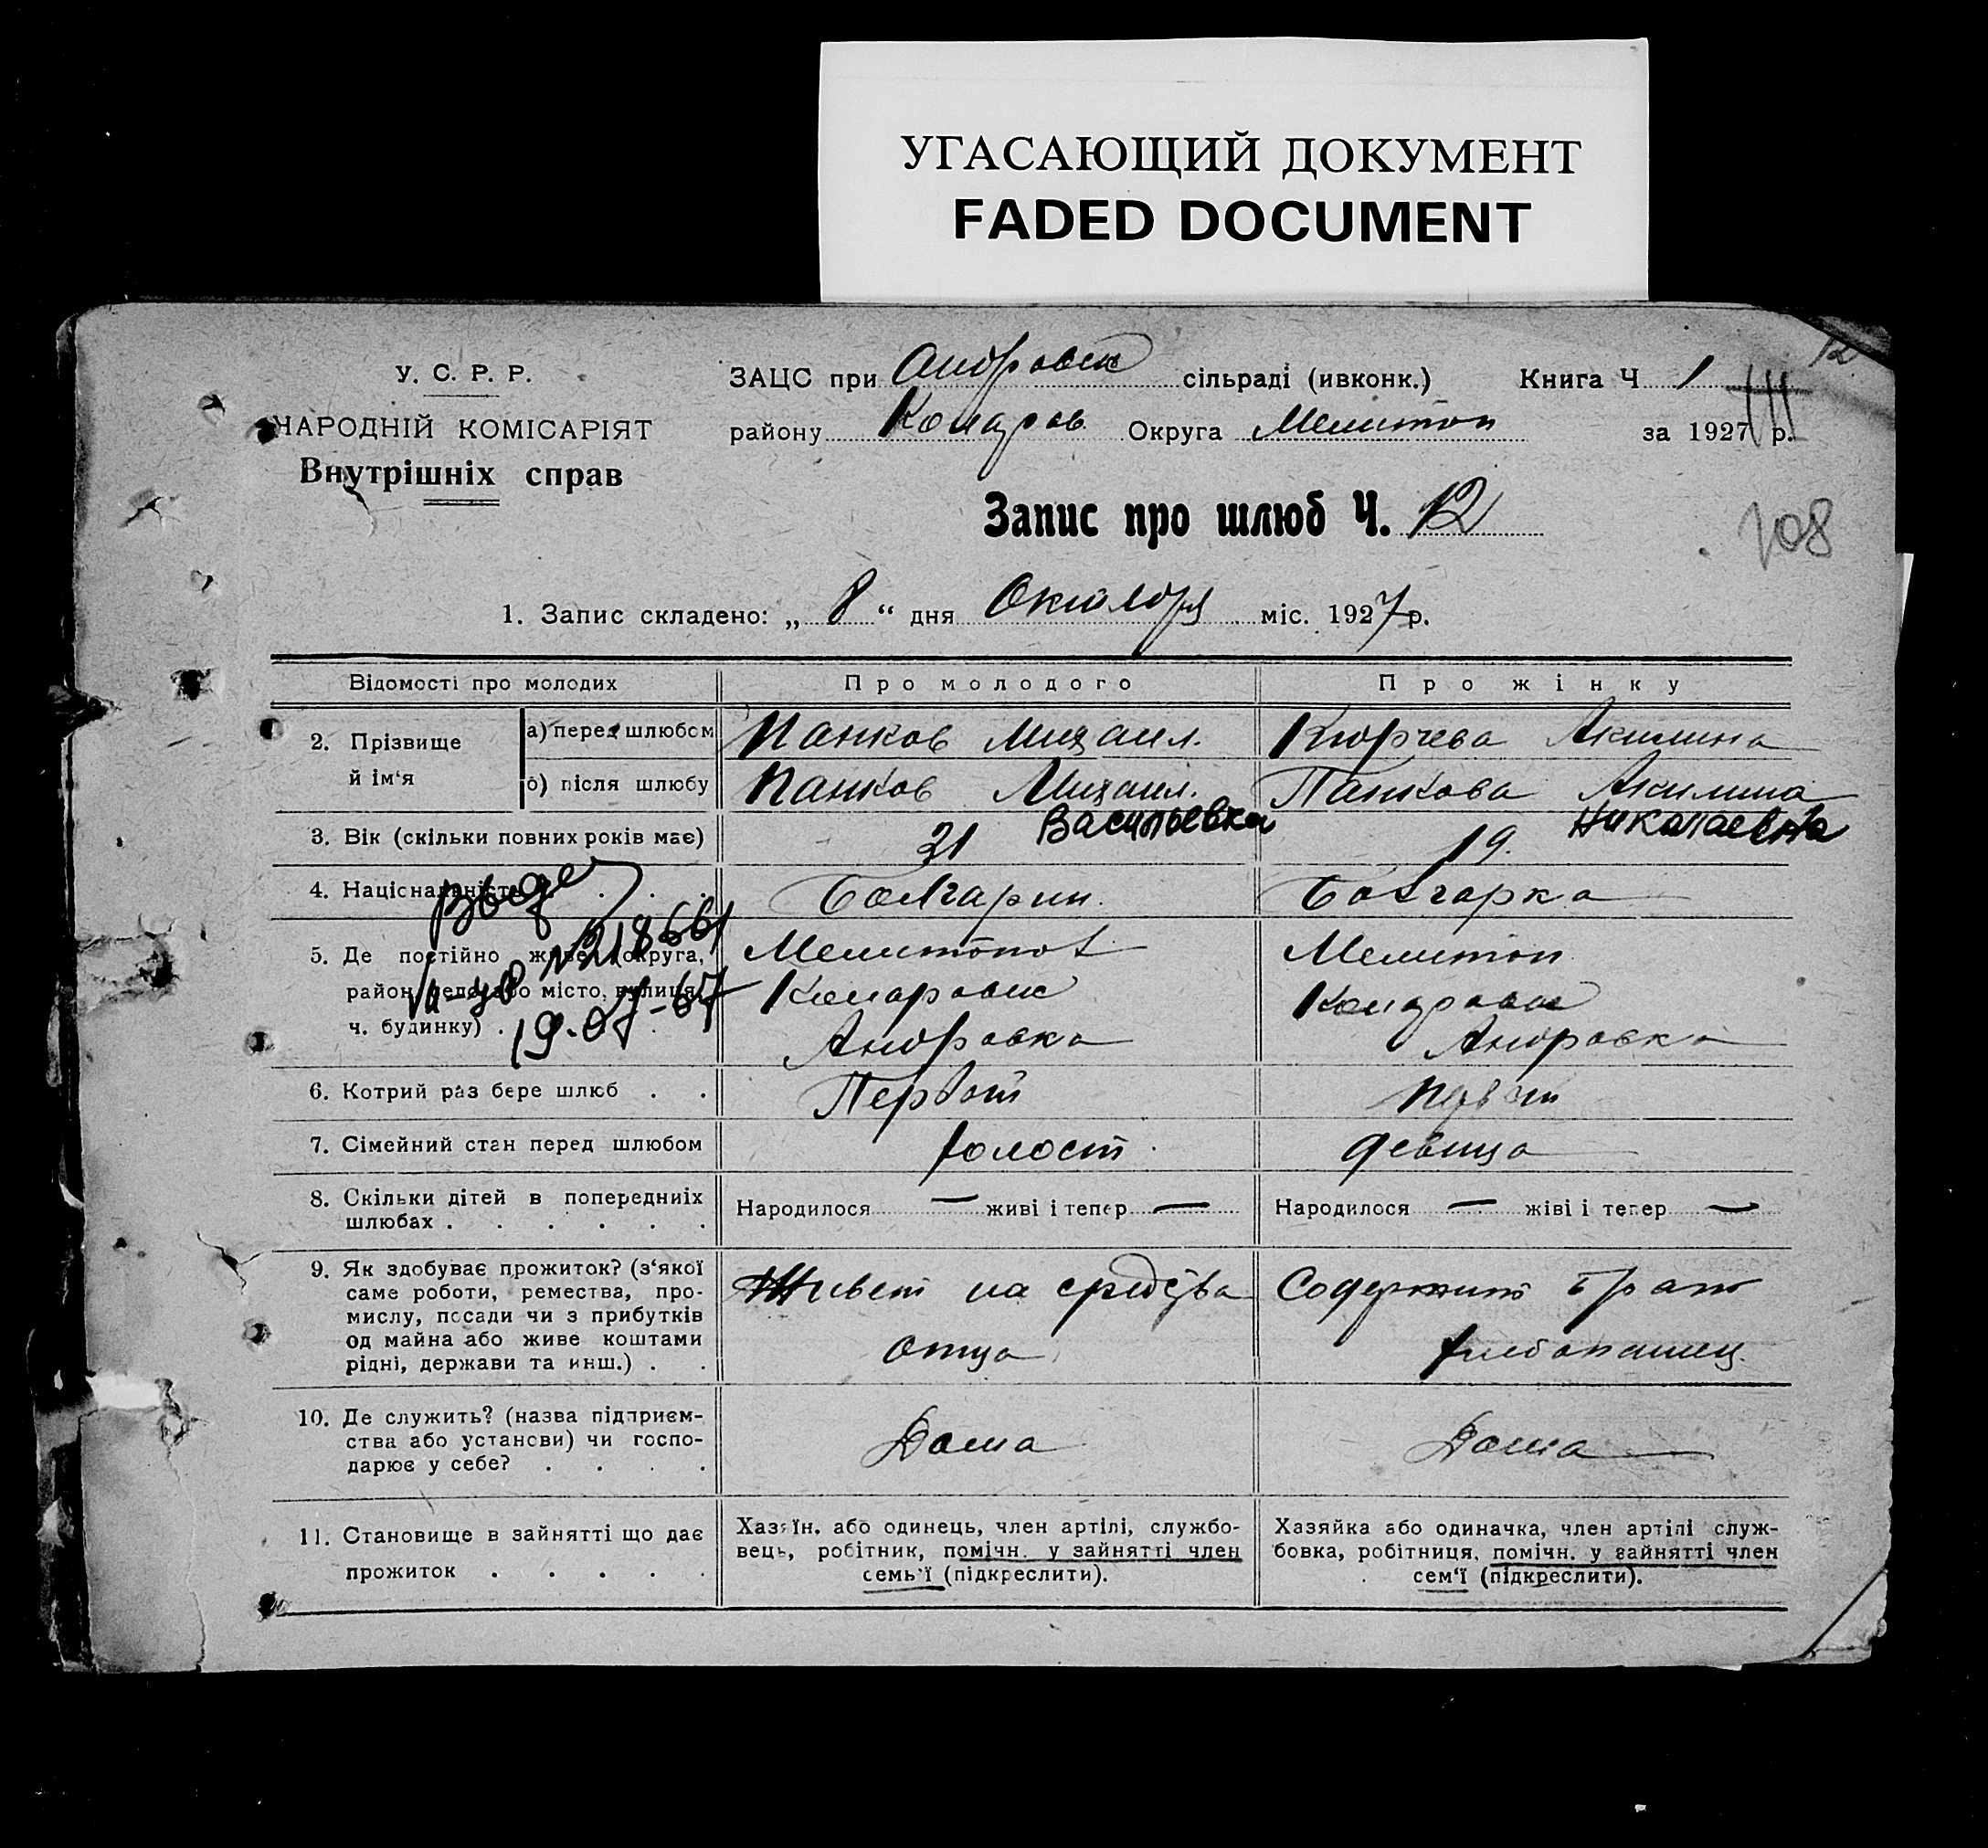 УГАСАЮЩИЙ ДОКУМЕНТ
FADED DOCUMENT
12
У. С. Р. Р.
НАРОДНІЙ КОМІСАРІЯТ
Внутрішніх справ
ЗАЦС при Андровск сільраді (ивконк.) Книга Ч 1
району Коларов Округа Мелитоп за 1927 р.
Запис про шлюб Ч. 12
108
1. Запис складено: „ 8 “ дня Октября міс. 1927 р.
Відомості про молодих Про молодого Про жінку
2. Прізвище й ім‘я
а) перед шлюбом Панков Михаил. Кюрчева Акилина
б) після шлюбу Панков Михаил. Панкова Акилина
Васильевич Николаевна
3. Вік (скільки повних років має) 31 19.
4. Національність . . . Болгарин. Болгарка
5. Де постійно живе (округа, Мелитопол Мелитоп
район, село або місто, вулиця, Коларовск Коларовск
ч. будинку) . Андровка Андровка
№218661
19-07-67
6. Котрий раз бере шлюб . . Первый первый
7. Сімейний стан перед шлюбом холост. девица
8. Скільки дітей в попередниіх
шлюбах . . . . . .
Народилося — живі і тепер — Народилося — жіві і тепер —
9. Як здобуває прожиток? (з‘якої
саме роботи, ремества, про-
мислу, посади чи з прибутків
од майна або живе коштами
рідні, держави та инш.) . .
Живет на средства
отца
Содержит брат
хлебопашец.
10. Де служить? (назва підприєм-
ства або установи) чи госпо-
дарює у себе? . . . .
Дома Дома
11. Становище в зайнятті що дає
прожиток . . . . .
Хазяїн, або одинець, член артілі, службо-
вець, робітник, помічн. у зайнятті член
семь‘ї (підкреслити).
Хазяйка або одиначка, член артілі служ-
бовка, робітниця, помічн. у зайнятті член
сем‘ї (підкреслити).